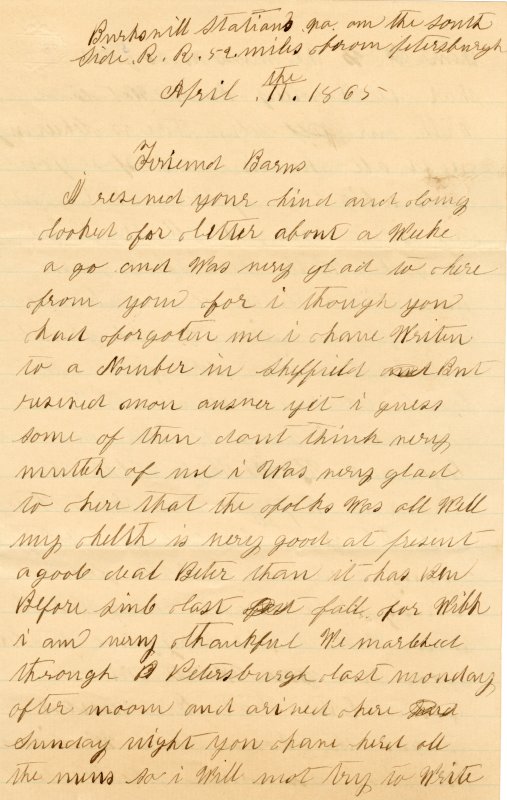 Burksvill Station va. on the South
Side. R. R. 52 miles from petersburgh
April .11.the 1865
Friend Barns
I resived your kind and long
looked for letter about a Weeke
a go and Was very glad to here
from you for i though you
had forgoten me i have Writen
to a Number in Sheffield and But
resived non answer yet i guess
some of then dont think very
mutch of me i Was very glad
to here that the folks Was all Well
my helth is very good at present
a good deal Beter than it has Ben
Before sinc last fall for Wich
i am very thankful We marched
through Petersburgh last monday
after noon and arived here
Sunday night you have herd all
the nuns so i Will not try to Write